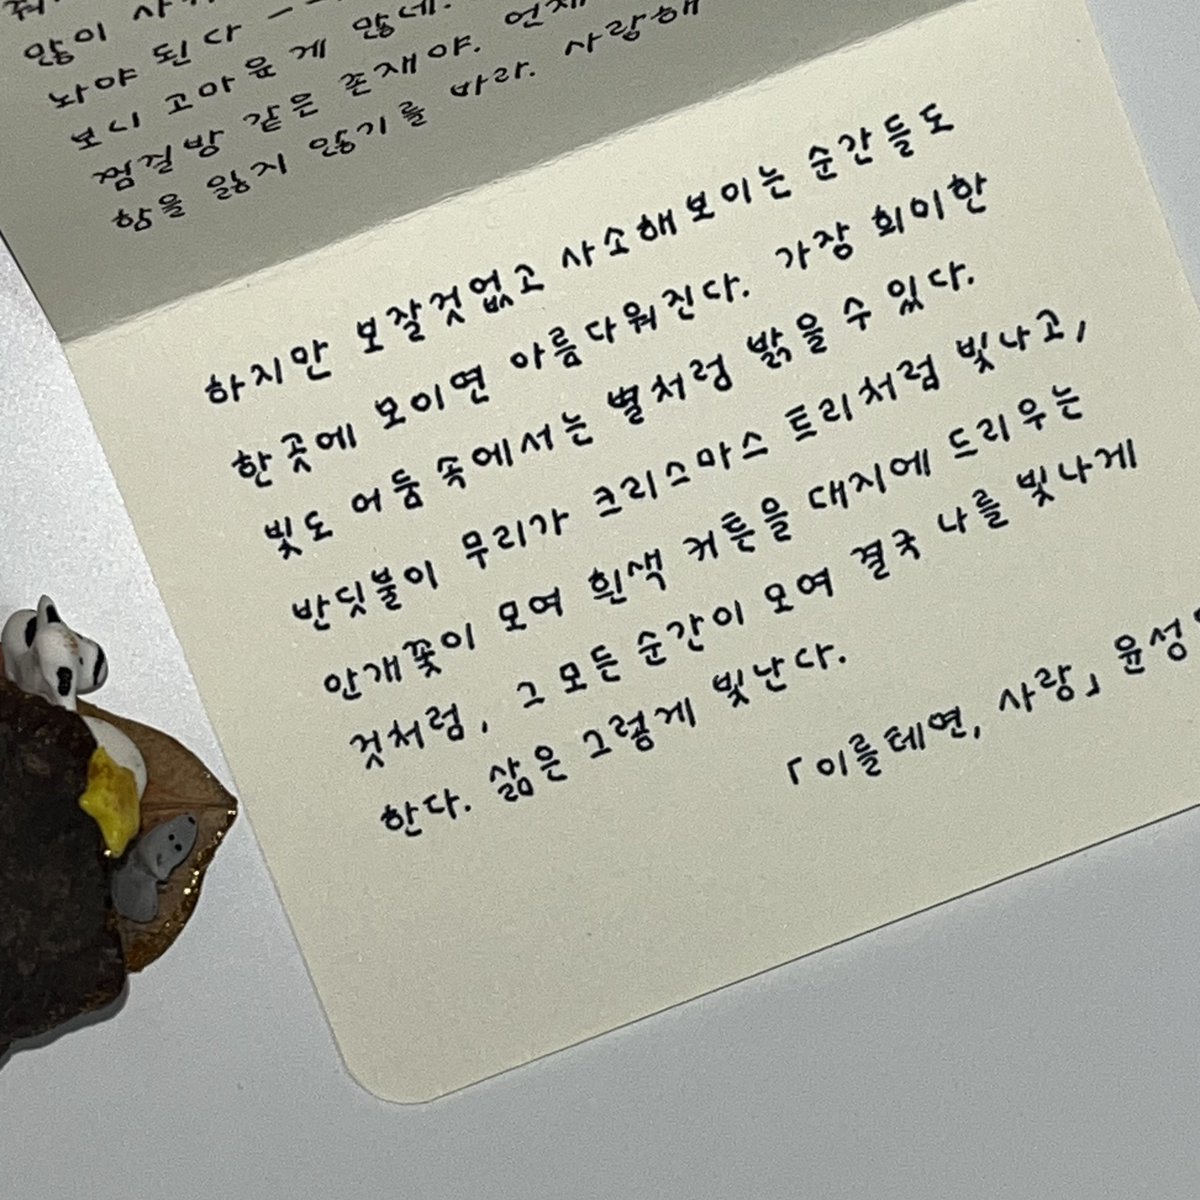 많이
놔야 된다
보니 고마운 게 많네. 언제
찜질방 같은 존재야. 사랑해
함을 잃지 않기를 바라.
하지만 보잘것없고 사소해보이는 순간들도
한곳에 모이면 아름다워진다. 가장 희미한
빛도 어둠 속에서는 별처럼 밝을 수 있다.
반딧불이 무리가 크리스마스 트리처럼 빛나고,
안개꽃이 모여 흰색 커튼을 대지에 드리우는
것처럼, 그 모든 순간이 모여 결국 나를 빛나게
한다. 삶은 그렇게 빛난다.
「이를테면, 사랑」 윤성